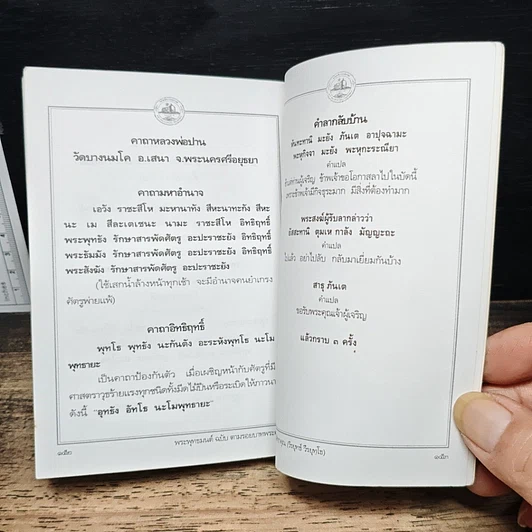 คาถาหลวงพ่อปาน
วัดบางนมโค อ.เสนา จ.พระนครศรีอยุธยา
คาถามหาอำนาจ
เอวัง ราชะสีโห มะหานาทัง สีหะนาทะกัง สีหะ
นะ เม สีละเตเชนะ นามะ ราชะสีโห อิทธิฤทธิ์
พระพุทธัง รักษาสารพัดศัตรู อะปะราชะยัง อิทธิฤทธิ์
พระธัมมัง รักษาสารพัดศัตรู อะปะราชะยัง อิทธิฤทธิ์
พระสังฆัง รักษาสารพัดศัตรู อะปะราชะยัง
(ใช้เสกน้ำล้างหน้าทุกเช้า จะมีอำนาจคนยำเกรง
ศัตรูพ่ายแพ้)
คาถาอิทธิฤทธิ์
พุทโธ พุทธัง นะกันตัง อะระหังพุทโธ นะโม
พุทธายะ
เป็นคาถาป้องกันตัว เมื่อเผชิญหน้ากับศัตรูที่มี
ศาสตราวุธร้ายแรงทุกชนิดทั้งมีดไม้ปืนหรือระเบิดให้ภาวนา
ดังนี้ "อุทธัง อัทโธ นะโมพุทธายะ"
พระพุทธมนต์ ฉบับ ตามรอยบาท
คำลากลับบ้าน
หันทะทานิ มะยัง ภันเต อาปุจฉามะ
พะหุกิจจา มะยัง พะหุกะระณียา
คำแปล
ท่านผู้เจริญ ข้าพเจ้าขอโอกาสลาไปในบัดนี้
เพราะข้าพเจ้ามีกิจธุระมาก มีสิ่งที่ต้องทำมาก
พระสงฆ์ผู้รับลากล่าวว่า
ตุมเห กาลัง มัญญะถะ
คำแปล
แล้ว อย่าไปลับ กลับมาเยี่ยมกันบ้าง
สาธุ ภันเต
คำแปล
ขอรับพระคุณเจ้าผู้เจริญ
แล้วกราบ ๓ ครั้ง
(วิรุฬห์ วิรุฬฺโห)